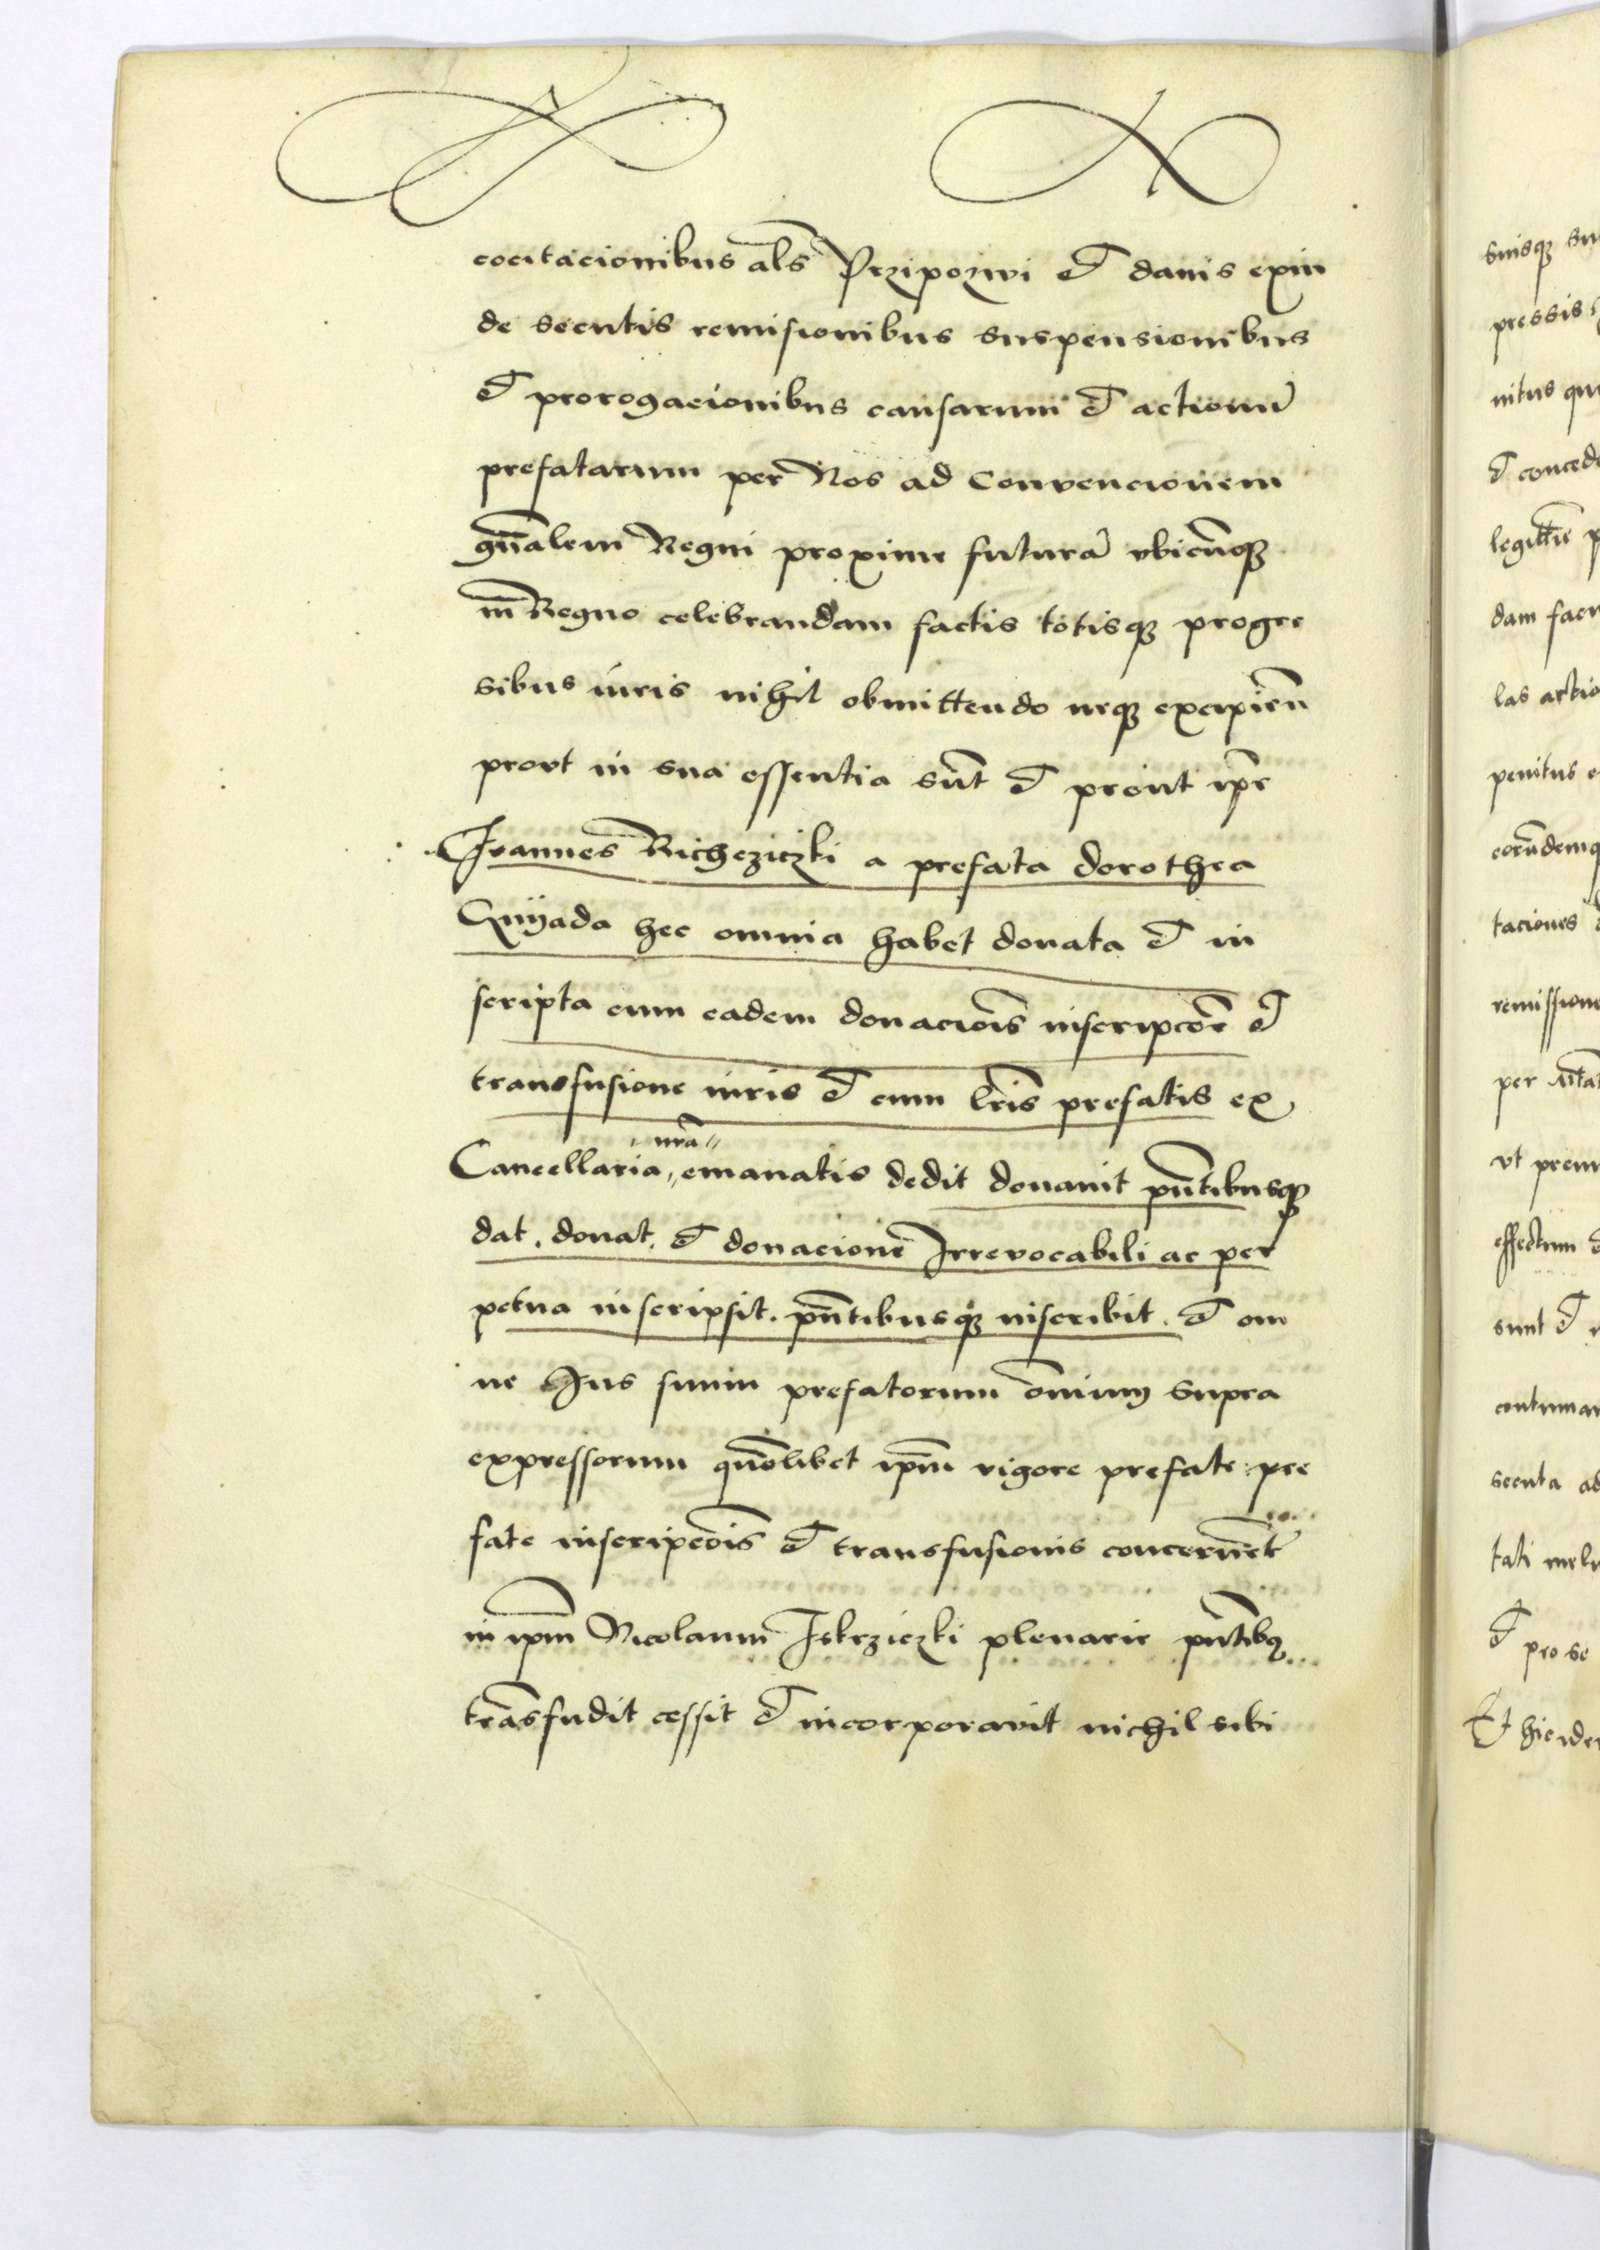 cocitacionibus als Przipozwi et damis exin
de secutis remisionibus suspensionibus
et prorogacionibus causarum et actionu
prefatarum per Nos ad Convencionem
gnalem Regni proxime futura vbicunq
in Regno celebrandam factis totisq progre
sibus iuris nihil obmittendo neq excipien
provt in sua essentia sunt et prout ipse
Joannes Richcziczki a prefata dorothea
Gnyada hec omnia habet donata et in
scripta cum eadem donaciois inscripcoe et
transfusione iuris et cum lris prefatis ex
nra
Cancellaria emanatis dedit donauit pntibusq
dat. donat. et donacione Irrevocabili ac per
petua inscripsit. pntibusq inscribit. et om
ne Jus suum prefatorum omium supra
expressorum quolibet ipm vigore prefate pre
fate inscripcois et transfusionis concernet
in ipm Nicolaum Iskrziczki plenarie pntibus
transfudit cessit et incorporavit nichil sibi
suisq
pressis
nitus
et
legittie
dam
las
penitus
taciones
per
vt
effectum
sunt et
secuta
tati
et pro se
Et hic